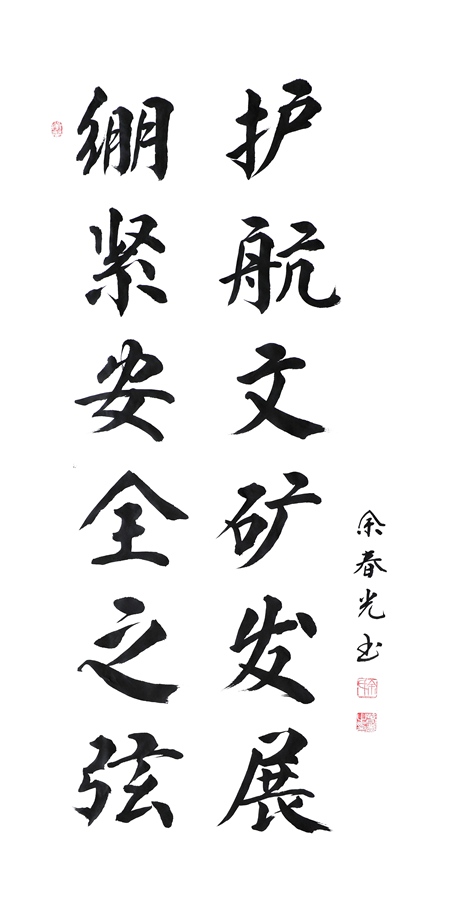 绷紧安全之弦
护航文矿发展
余春光书